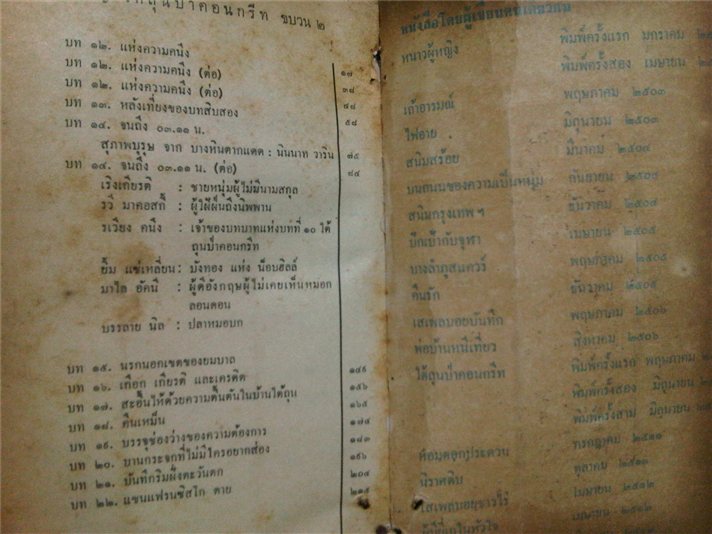 ใต้ถุนป่าคอนกรีท ขบวน ๒
บท ๑๒. แห่งความคนึง
บท ๑๒. แห่งความคนึง (ต่อ) ๑๗
บท ๑๒. แห่งความคนึง (ต่อ) ๓๘
บท ๑๓. หลังเที่ยงของบทสิบสอง ๔๘
บท ๑๔. จนถึง ๐๓.๑๑ น. ๕๘
สุภาพบุรุษ จาก บางหินตากแดด : นินนาท วาริน ๗๕
บท ๑๔. จนถึง ๐๓.๑๑ น. (ต่อ) ๘๔
เริงเกียรติ : ชายหนุ่มผู้ไม่มีนามสกุล
รวี มาคอสกี้ : ผู้ใฝ่ฝันถึงนิพพาน
รเวียง คนึง : เจ้าของบทบาทแห่งบทที่ ๑๐ ใต้
ถุนป่าคอนกรีท
ยิ้ม แซ่เหลียน : บังทอง แห่ง น็อบฮิลล์
มาไล อัคนี : ผู้ดีอังกฤษผู้ไม่เคยเห็นหมอก
ลอนดอน
บรรลาย นิล : ปลาหมอบก
บท ๑๕. นรกนอกเขตของยมบาล ๑๔๙
บท ๑๖. เกือก เกียรติ และเครดิต ๑๕๖
บท ๑๗. สะอื้นไห้ด้วยความตื้นตันในบ้านใต้ถุน ๑๖๕
บท ๑๘. คืนเหม็น ๑๗๔
บท ๑๙. บรรจุช่องว่างของความต้องการ ๑๘๓
บท ๒๐. บานกระจกที่ไม่มีใครอยากส่อง ๑๙๖
บท ๒๑. บันทึกริมฝั่งตะวันตก ๒๐๔
บท ๒๒. แซนแฟรนซิสโก ตาย ๒๑๕
หนังสือโดยผู้เขียนคนเดียวกัน
หนาวผู้หญิง พิมพ์ครั้งแรก มกราคม
พิมพ์ครั้งสอง เมษายน
เถ้าอารมณ์ พฤษภาคม ๒๕๐๓
ไฟอาย มิถุนายน ๒๕๐๓
สนิมสร้อย มีนาคม ๒๕๐๔
บนถนนของความเป็นหนุ่ม กันยายน ๒๕๐๔
สนิมกรุงเทพ ฯ ธันวาคม ๒๕๐๔
บึกเบ้ากับจุฬา เมษายน ๒๕๐๕
บางลำภูสแควร์ พฤษภาคม ๒๕๐๕
คืนรัก ธันวาคม ๒๕๐๕
เสเพลบอยบันทึก พฤษภาคม ๒๕๐๖
พ่อบ้านหนีเที่ยว สิงหาคม ๒๕๐๖
ใต้ถุนป่าคอนกรีท พิมพ์ครั้งแรก พฤษภาคม
พิมพ์ครั้งสอง มิถุนายน
พิมพ์ครั้งสาม มิถุนายน
กรกฎาคม ๒๕๑๑
นิราศดิบ ตุลาคม ๒๕๑๑
เสเพลบอยชาวไร่ เมษายน ๒๕๑๒
เมษายน ๒๕๑๒